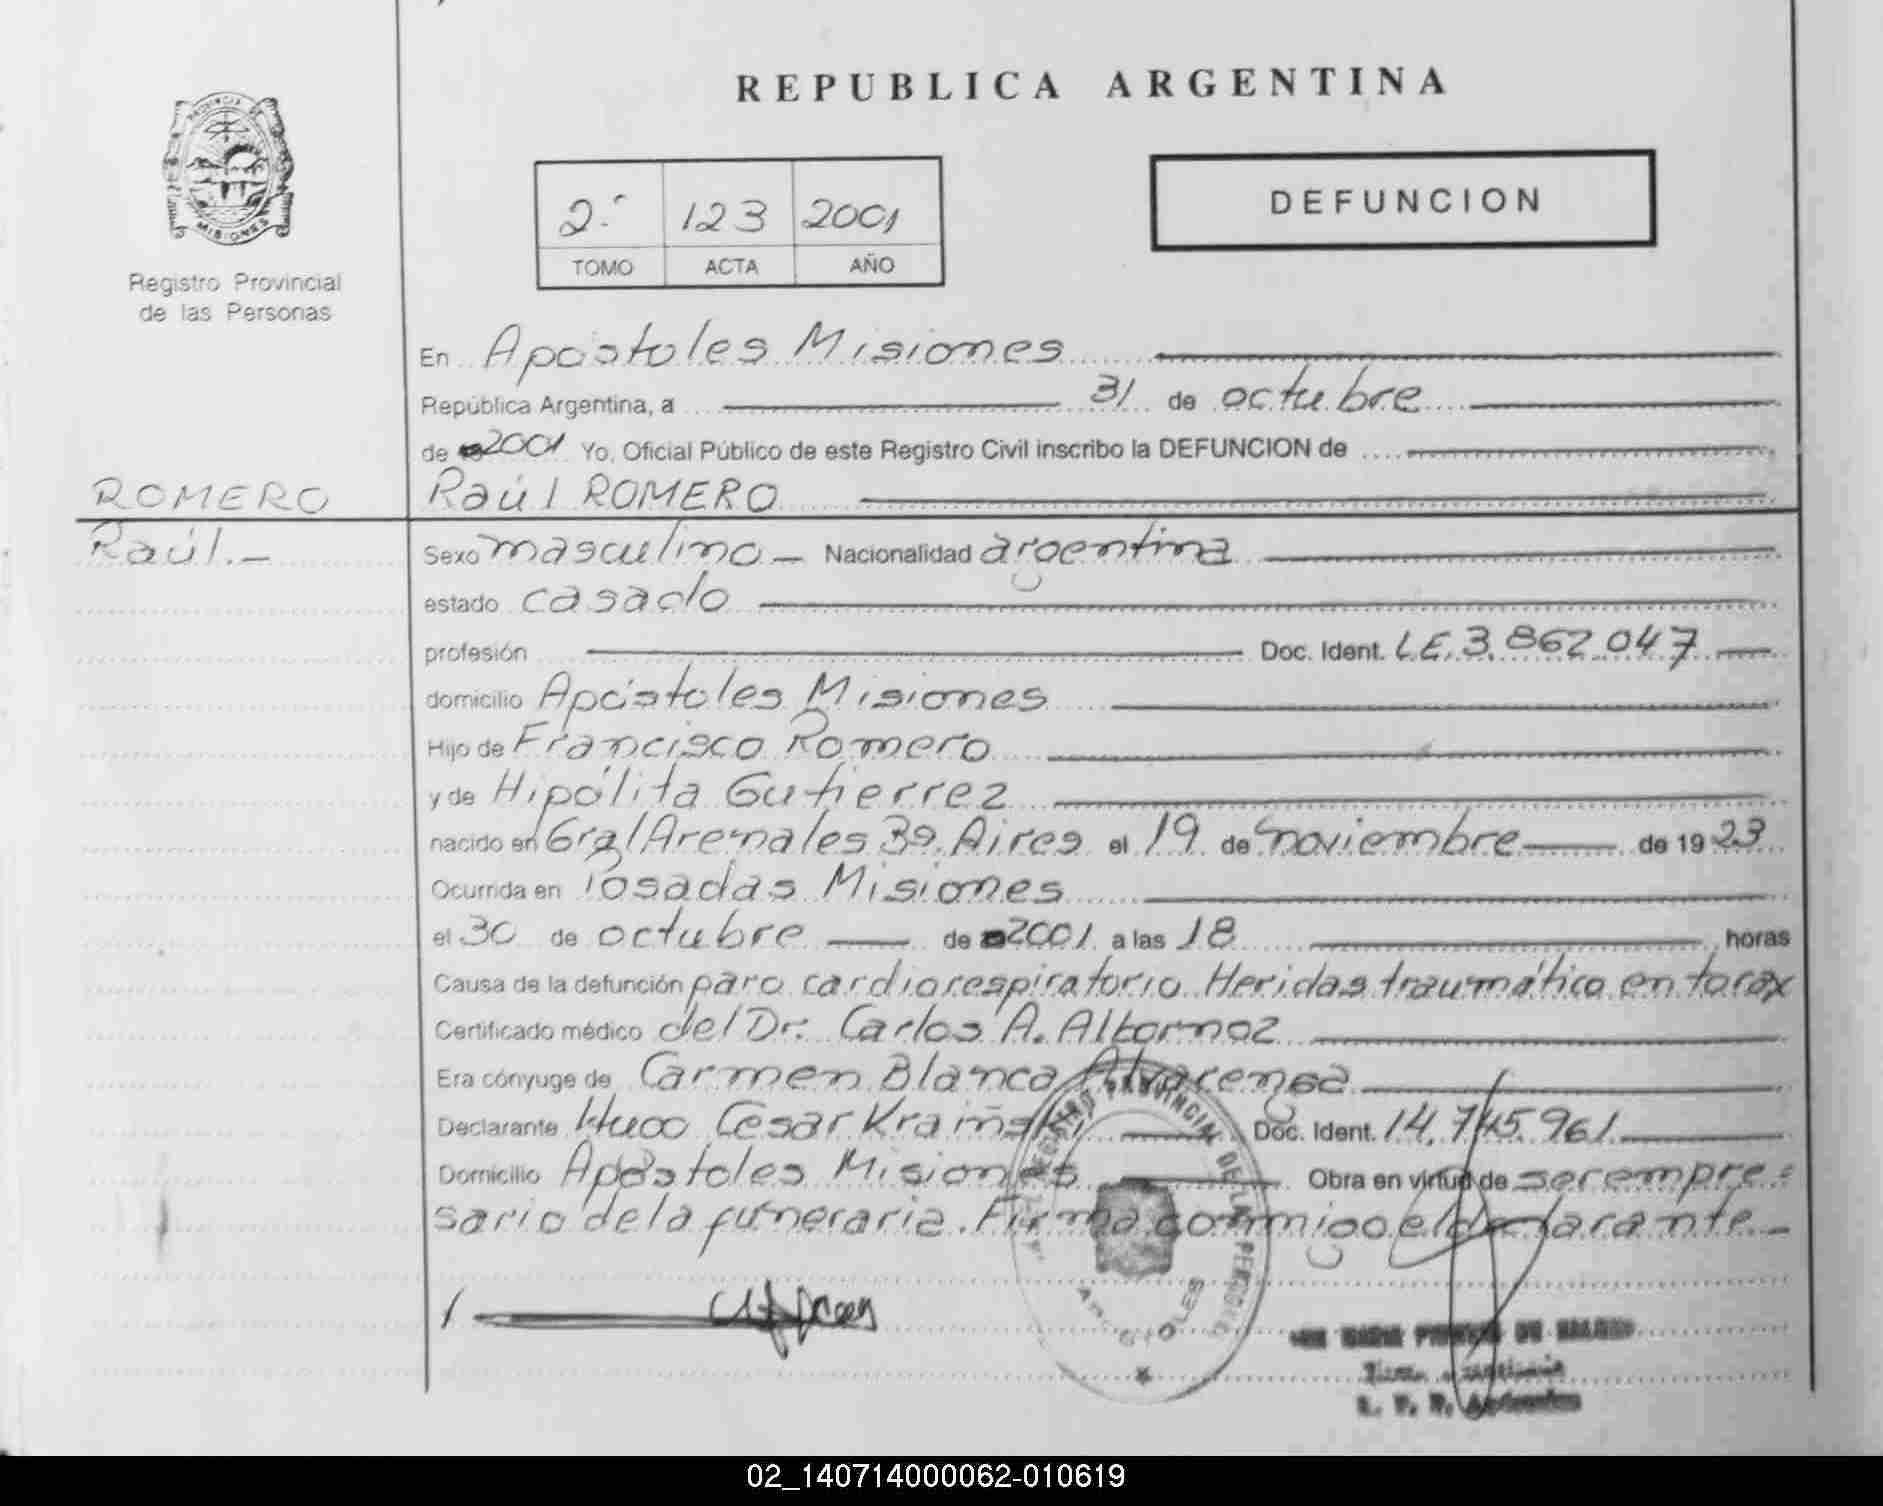 REPUBLICA ARGENTINA
PROVINCIA DE
MISIONES
Registro Provincial
de las Personas
2º 123 2001
TOMO ACTA AÑO
DEFUNCION
En Apóstoles Misiones
República Argentina, a 31 de octubre
de 2001 Yo, Oficial Público de este Registro Civil inscribo la DEFUNCION de
ROMERO
Raúl.-
Raúl ROMERO
Sexo masculino - Nacionalidad argentina
estado casado
profesión Doc. Ident. L.E. 3.862.047
domicilio Apóstoles Misiones
Hijo de Francisco Romero
y de Hipólita Gutierrez
nacido en Gral Arenales Bs. Aires el 19 de noviembre de 1923
Ocurrida en Posadas Misiones
el 30 de octubre de 2001 a las 18 horas
Causa de la defunción paro cardiorespiratorio. Heridas traumático en torax
Certificado médico del Dr. Carlos A. Albornoz
Era cónyuge de Carmen Blanca Alvarenga
Declarante Hugo César Doc. Ident. 14.745.961
Domicilio Apóstoles Misiones Obra en virtud de ser empre=
sario de la funeraria. Firma conmigo el declarante.-
REGISTRO PROVINCIAL DE LAS PERSONAS
APOSTOLES
02_140714000062-010619